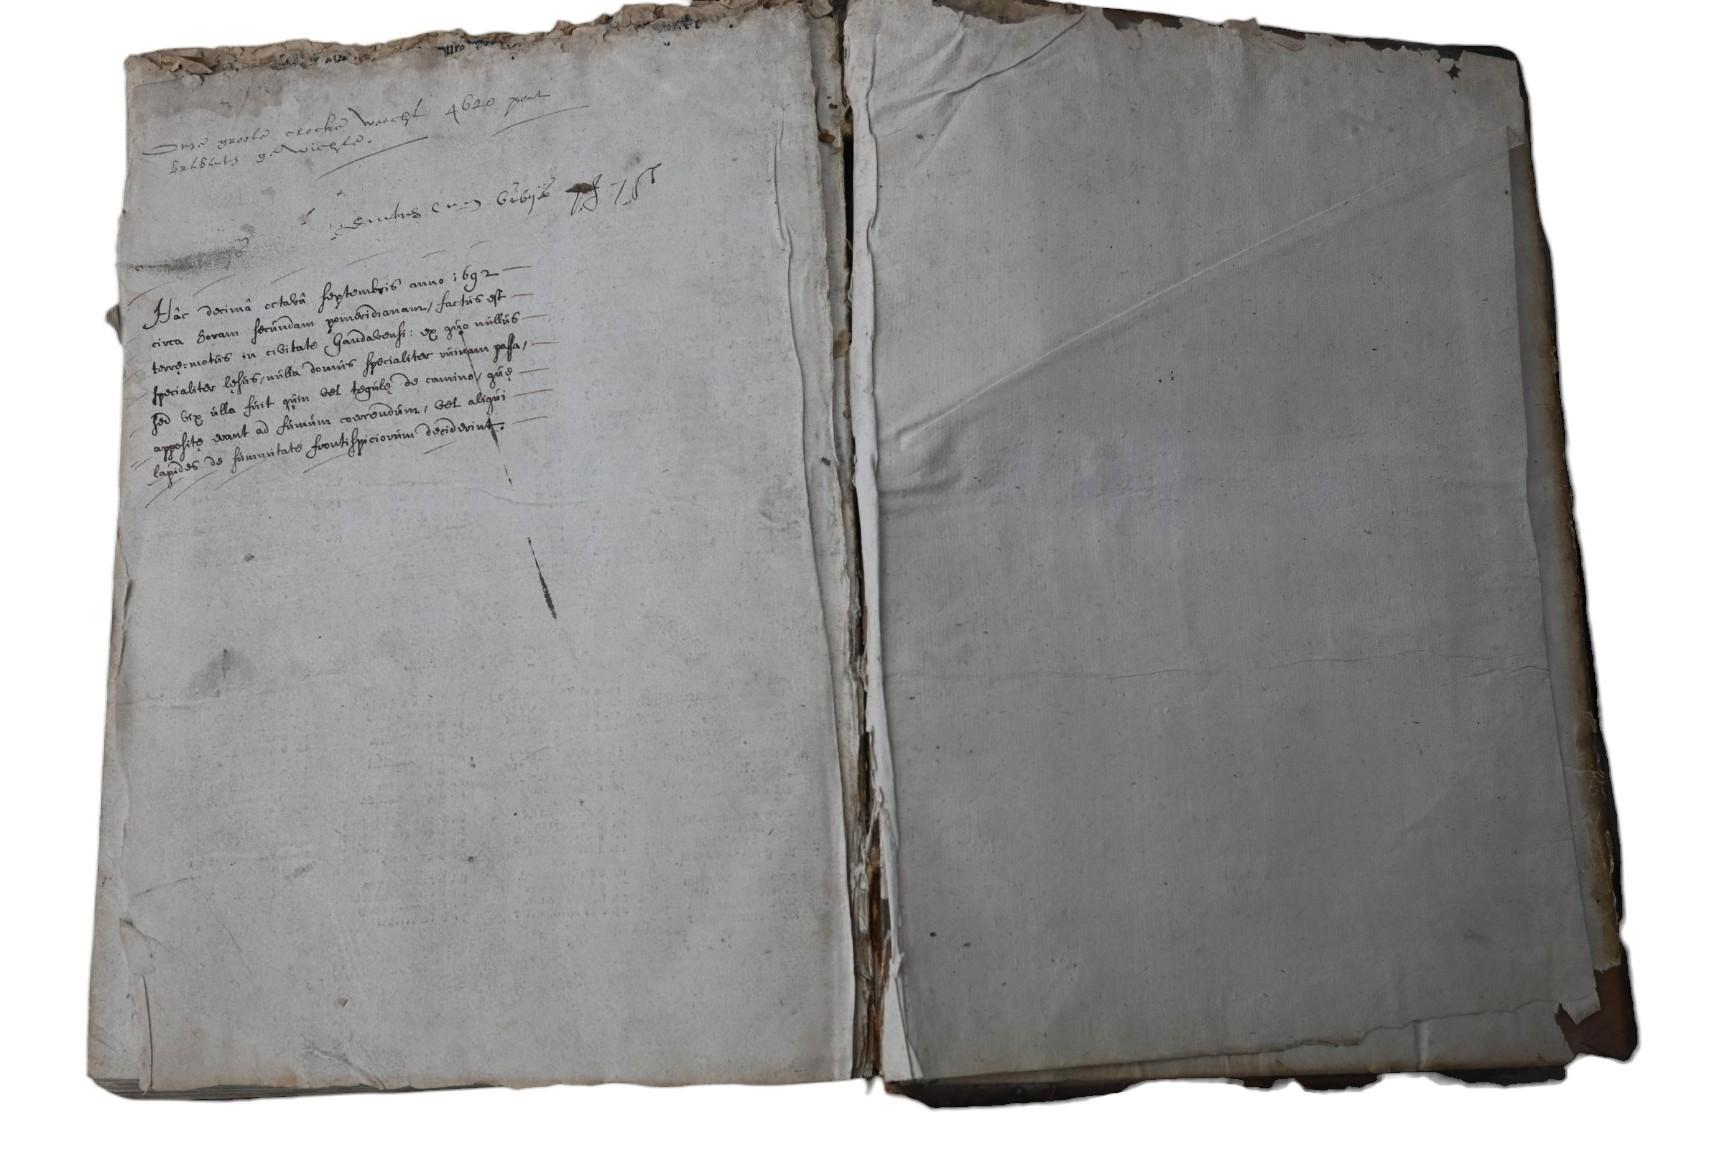 onze groote clocke weecht 4620 pont
gewichte.
Hâc decimâ octavâ septembris anno 1692
circa horam secundam pomeridianam, factus est
terręmotus in civitate Gandavensi: ex quo nullus
specialiter lęsus, nulla domus specialiter ruinam passa,
sed vix ulla fuit quin vel tegulę de camino, quę
appositę erant ad fumum coercendum, vel aliqui
lapides de summitate frontispiciorum deciderint.